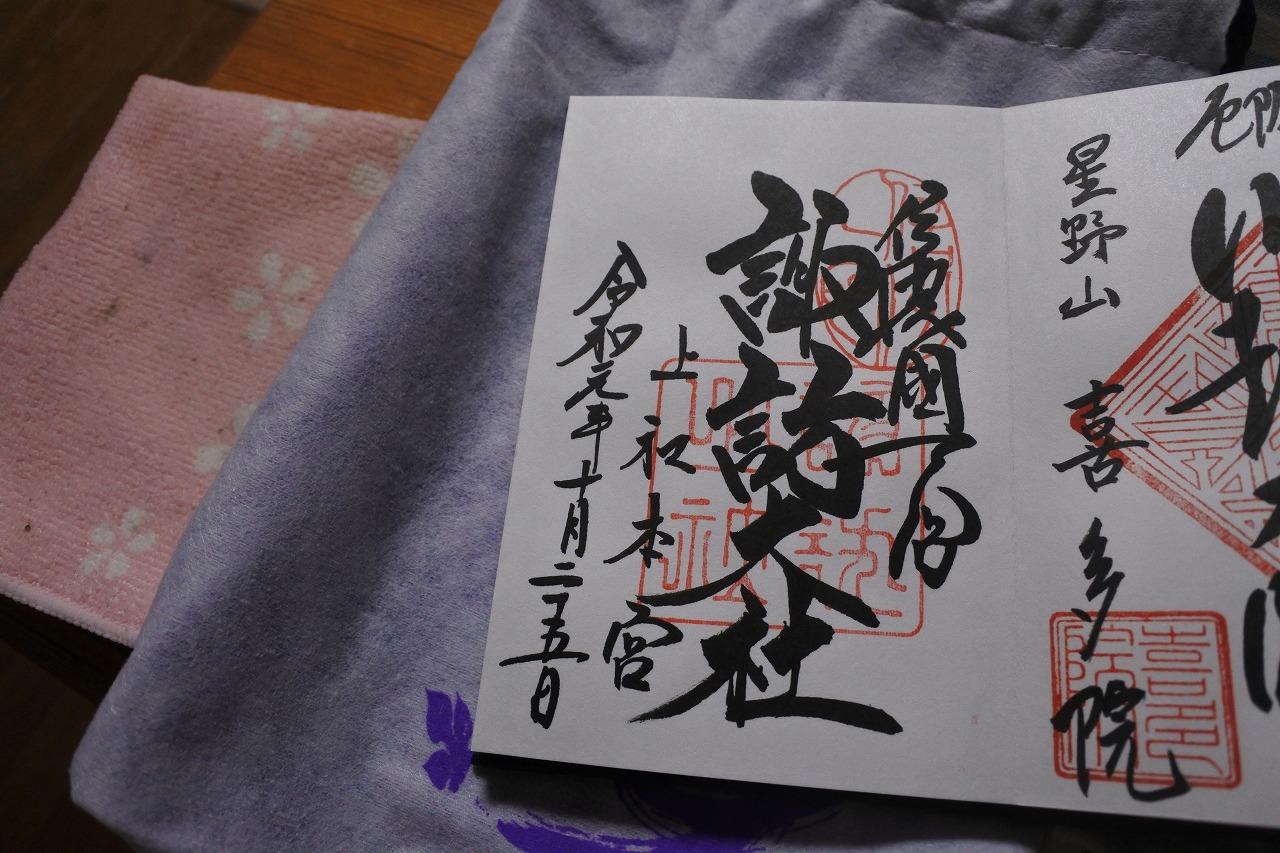 星野山 喜多院
信濃國一之宮
諏訪大社
上社本宮
令和元年十月二十五日